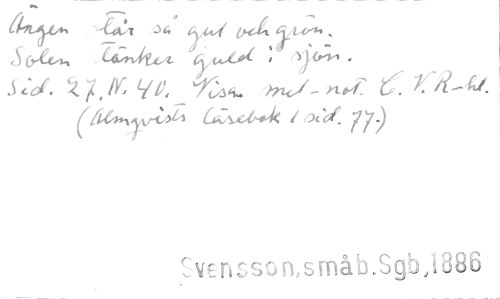 Ängen står så gul och grön.
Solen stänker guld i sjön.
Sid. 27. N. 40. Visa. mel-not. C. V. R-hl.
(Almqvists läsebok 1 sid. 77.)
Svensson, småb. Sgb, 1886